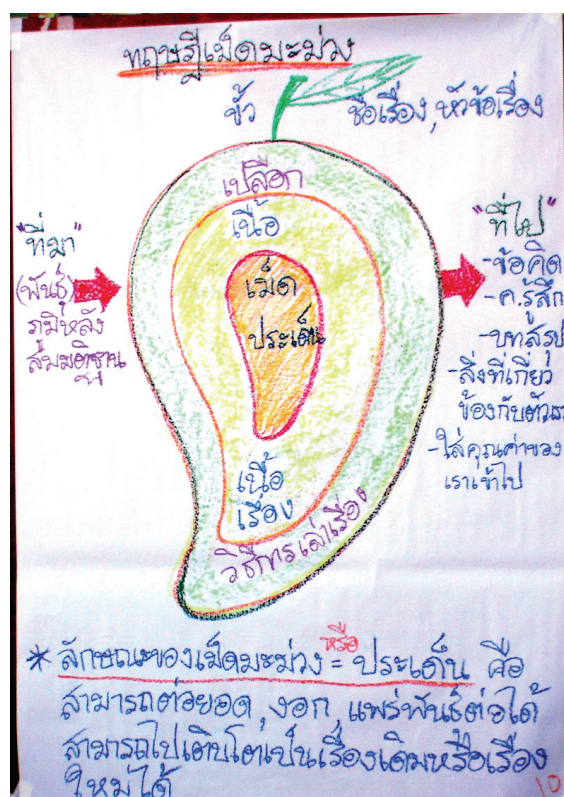 ทฤษฎีเม็ดมะม่วง
ขั้ว
ชื่อเรื่อง, หัวข้อเรื่อง
เปลือก
เนื้อ
เม็ด
ประเด็น
เนื้อ
เรื่อง
วิธีการเล่าเรื่อง
"ที่มา"
(พันธุ์)
ภูมิหลัง
สมมติฐาน
"ที่ไป"
-ข้อคิด
-ค.รู้สึก
-บทสรุป
-สิ่งที่เกี่ยว
ข้องกับตัวเรา
-ใส่คุณค่าของ
เราเข้าไป
หรือ
* ลักษณะของเม็ดมะม่วง = ประเด็น คือ
สามารถต่อยอด, งอก, แพร่พันธุ์ต่อได้
สามารถไปเติบโตเป็นเรื่องเดิมหรือเรื่อง
ใหม่ได้
10